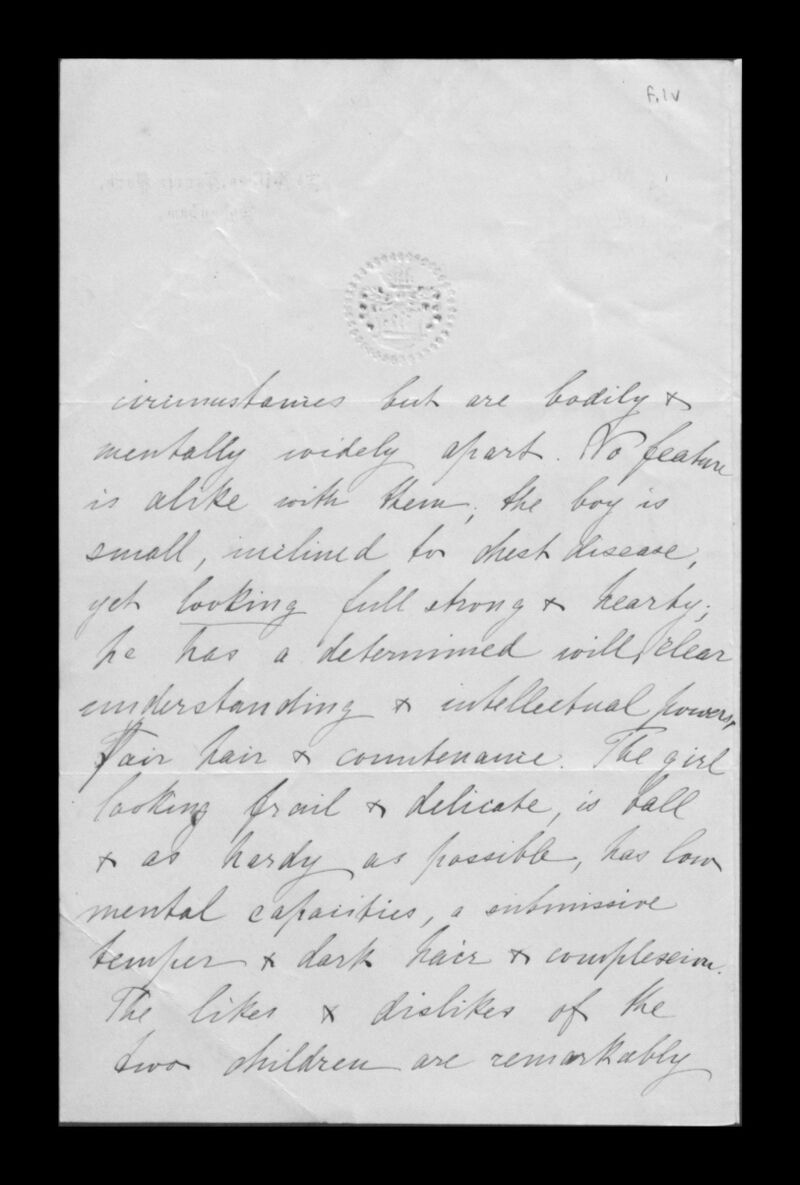 f.1v
circumstances but are bodily &
mentally widely apart. No feature
is alike with them; the boy is
small, inclined to chest disease,
yet looking full strong & hearty;
he has a determined will, clear
understanding & intellectual powers,
Fair hair & countenance. The girl
looking frail & delicate, is tall
& as hardy as possible, has low
mental capacities, a submissive
temper & dark hair & complexion.
The likes & dislikes of the
two children are remarkably